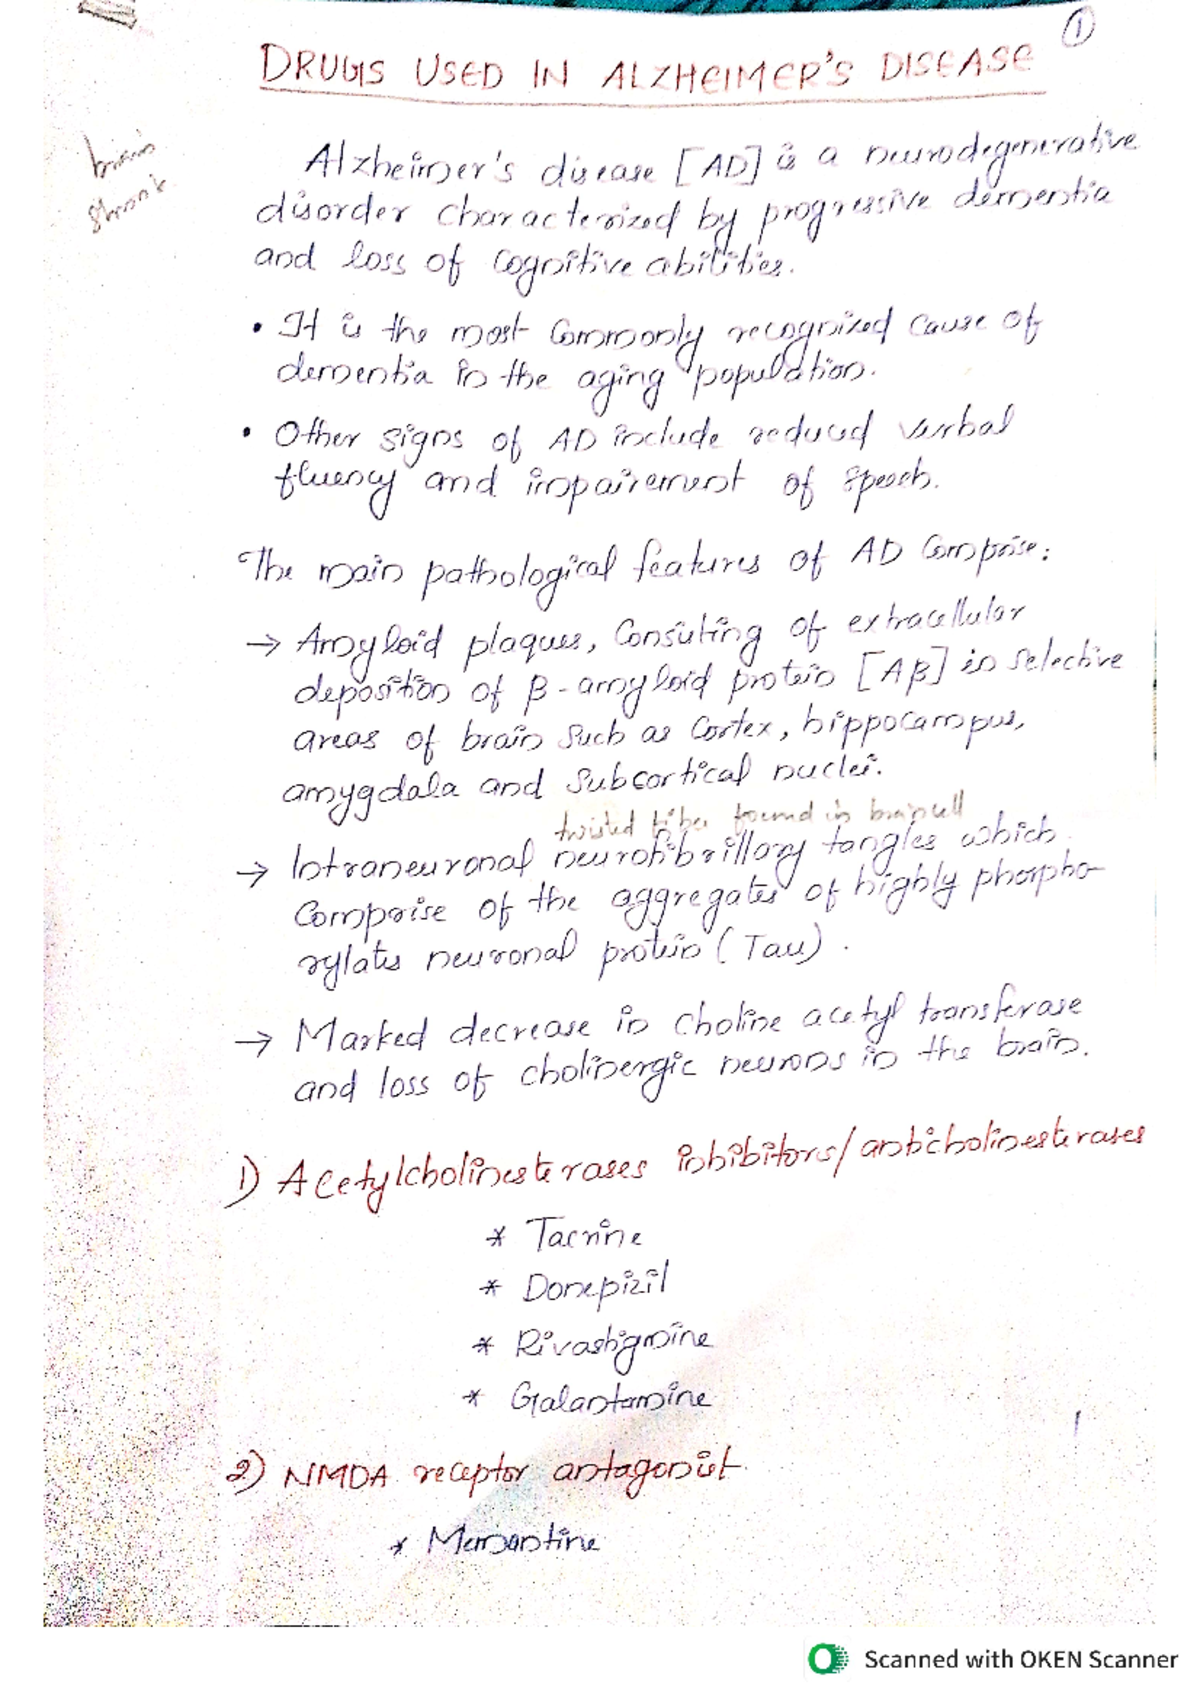 ①
DRUGS USED IN ALZHEIMER'S DISEASE
brain
shrink
Alzheimer's disease [AD] is a neurodegenerative
disorder characterized by progressive dementia
and loss of cognitive abilities.
• It is the most commonly recognized cause of
dementia in the aging population.
• Other signs of AD include reduced verbal
fluency and impairement of speech.
The main pathological features of AD comprise:
→ Amyloid plaques, consisting of extracellular
deposition of β-amyloid protein [Aβ] in selective
areas of brain such as cortex, hippocampus,
amygdala and subcortical nuclei.
twisted fiber found in brain cell
→ Intraneuronal neurofibrillory tangles which
comprise of the aggregates of highly phospho-
rylates neuronal protein (Tau).
→ Marked decrease in choline acetyl transferase
and loss of cholinergic neurons in the brain.
1) Acetylcholinesterases inhibitors/anticholinesterases
* Tacrine
* Donepizil
* Rivastigmine
* Galantamine
2) NMDA receptor antagonist
* Memantine
Scanned with OKEN Scanner